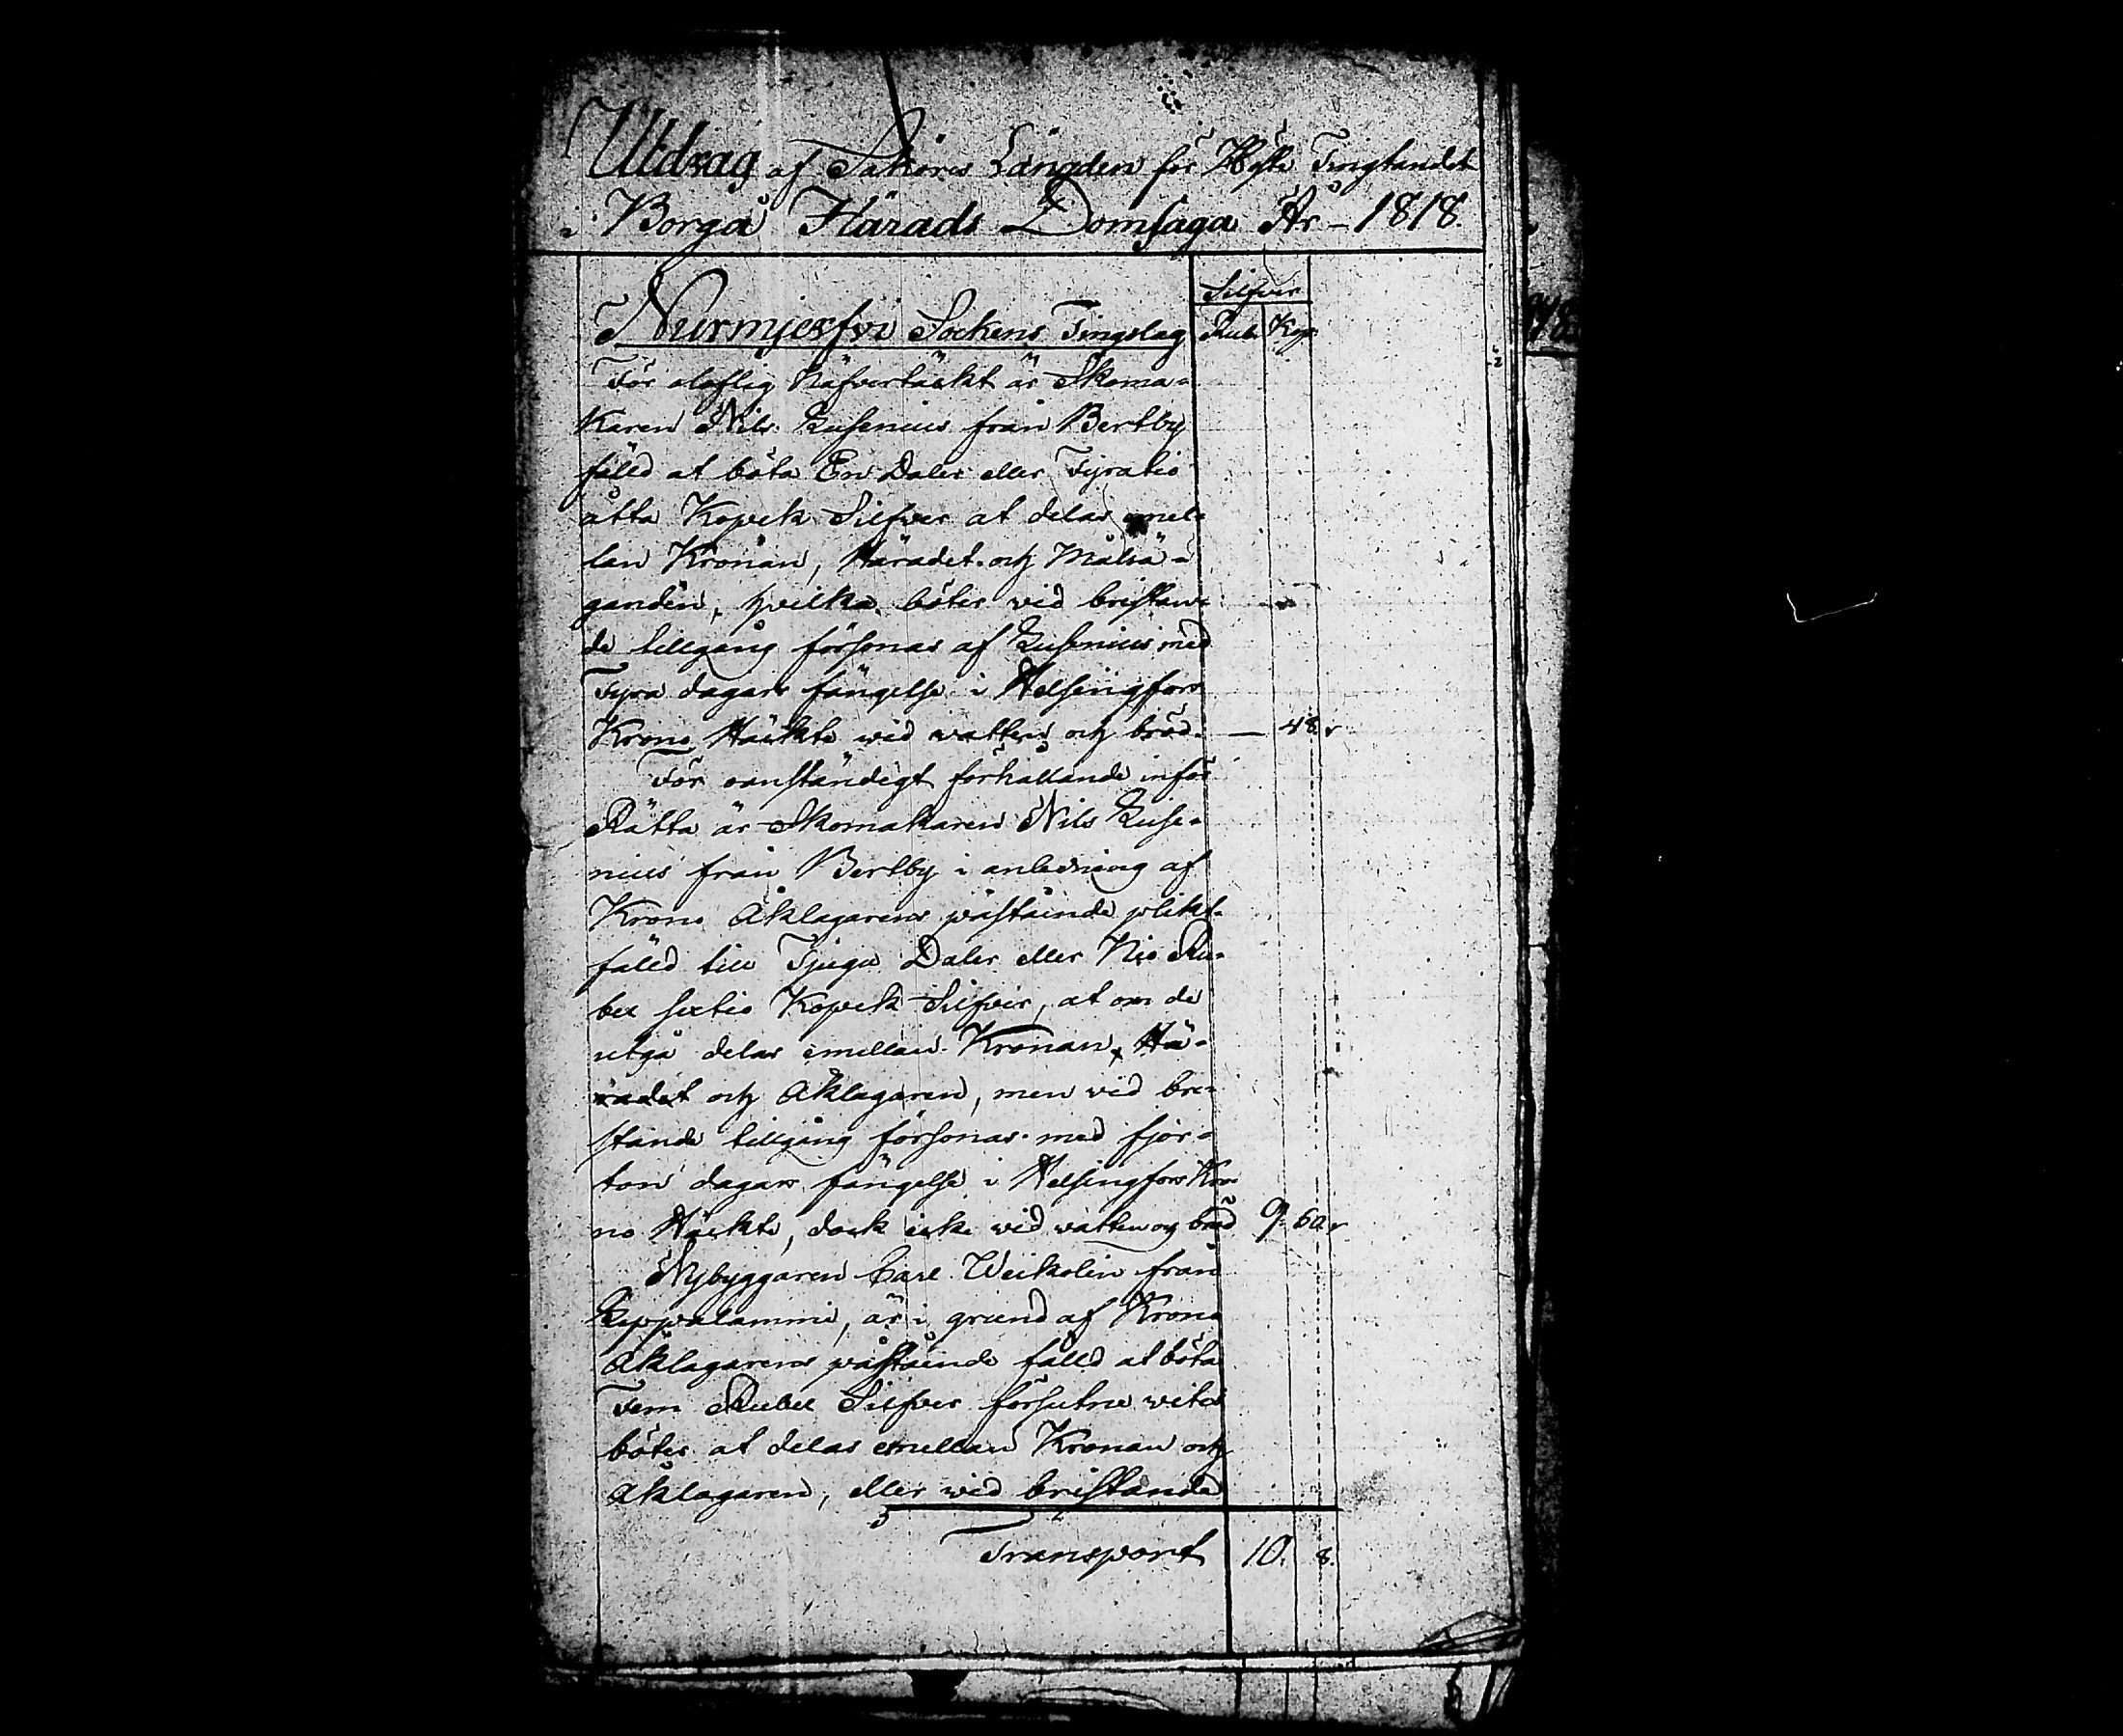 Utdrag af Saköres Längden för Höste Tingtandet
i Borgå Härads Domsaga År - 1818.
Silfver
Nurmijerfvi Sockens Tingslag Rub. Kop.
För olaflig Näfvertäckt är Skoma-
karen Nils Kusenius från Bertby
fälld at böta En Daler eller Fyratio
åtta Kopek Silfver at delas emel-
lan Kronan, Häradet och Målsä-
ganden, hvilka böter vid bristan-
de tillgång försonas af Kusenius med
Fyra dagars fängelse i Helsingfors
Krono Häckte wid watten och bröd. — 48.
För oanständigt förhållande inför
Rätta är Skomakaren Nils Kuse-
nius från Bertby i anledning af
Krono Åklagarens påstående plikt-
fälld till Tjugu Daler eller Nio Ru-
bel sextio Kopek Silfver, at om de
utgå delas emellan Kronan, Hä-
radet och Åklagaren, men vid bri-
stande tillgång försonas med fjor-
ton dagars fängelse i Helsingfors Kro-
no Häckte, dock icke wid watten og bröd 9. 60.
Nybyggaren Carl Weikolin från
Keppalammi, är i grund af Krono
Åklagarens påstående fälld at böta
Fem Rubel Silfver försutne wites
böter at delas emellan Kronan och
Åklagaren, eller wid bristande
Transport 10. 8.